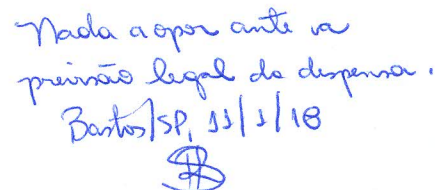 Nada a opor ante a
previsão legal da dispensa.
Bastos/SP, 11/1/18